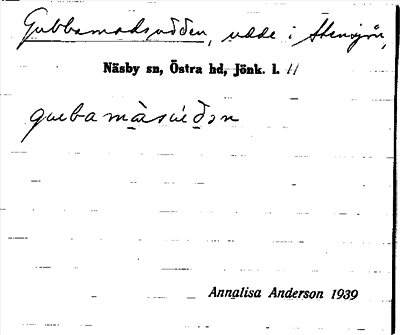 Gubbamadsudden, udde i Stensjön,
Näsby sn, Östra hd, Jönk. l. 11
gubamàsúdən
Annalisa Anderson 1939